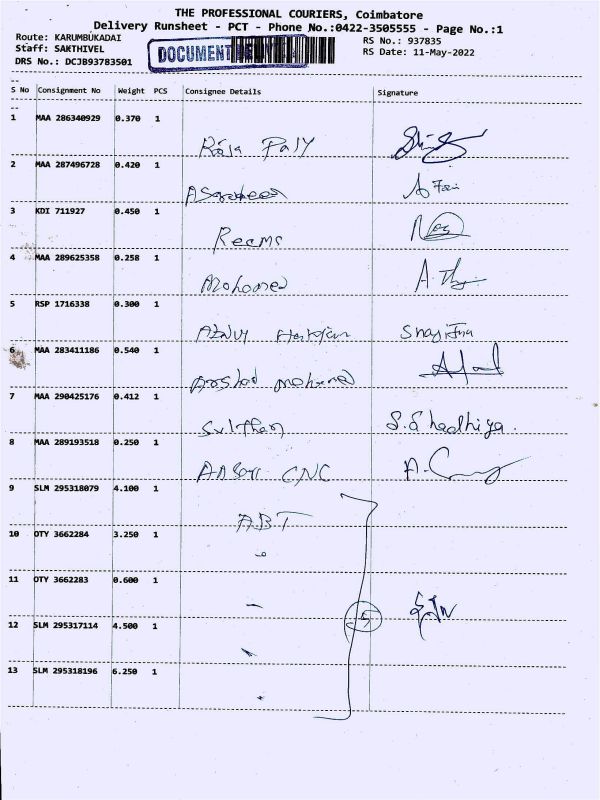 THE PROFESSIONAL COURIERS, Coimbatore
Delivery Runsheet - PCT - Phone No.:0422-3505555 - Page No.:1
Route: KARUMBUKADAI RS No.: 937835
Staff: SAKTHIVEL DOCUMENT RS Date: 11-May-2022
DRS No.: DCJB93783501
S No Consignment No Weight PCS Consignee Details Signature
1 MAA 286340929 0.370 1
Raja
2 MAA 287496728 0.420 1
3 KDI 711927 0.450 1
4 MAA 289625358 0.258 1
Mohamed
5 RSP 1716338 0.300 1
6 MAA 283411186 0.540 1
Arshad Mohamed
7 MAA 290425176 0.412 1
Sulthan S.Shadhiya.
8 MAA 289193518 0.250 1
Ansari CNC
9 SLM 295318079 4.100 1
ABT
10 OTY 3662284 3.250 1
11 OTY 3662283 0.600 1
5
12 SLM 295317114 4.500 1
13 SLM 295318196 6.250 1